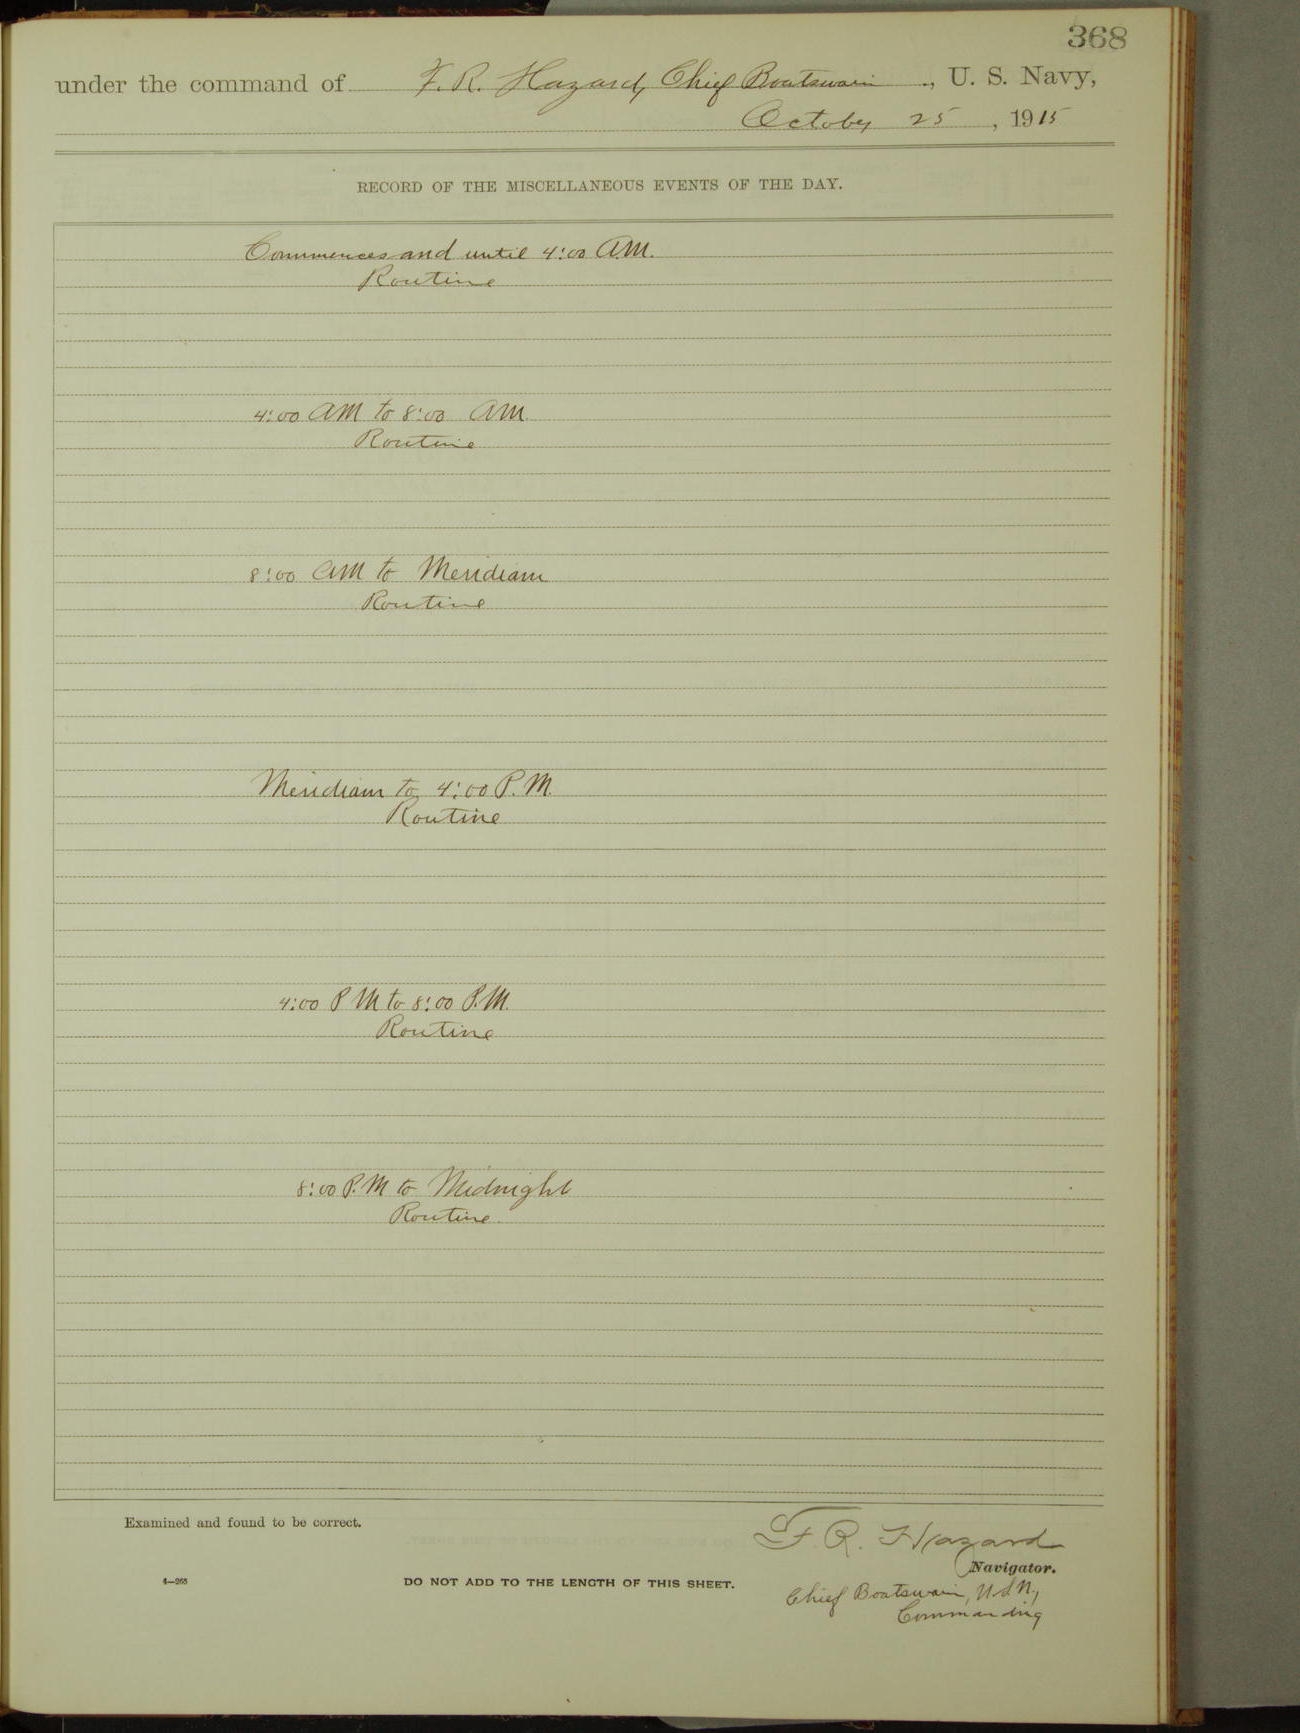 368
under the command of F. R. Hazard, Chief Boatswain, U. S. Navy,
October 25, 1915
RECORD OF THE MISCELLANEOUS EVENTS OF THE DAY.
Commences and until 4:00 A.M.
Routine
4:00 AM to 8:00 AM
Routine
8:00 AM to Meridian
Routine
Meridian to 4:00 P.M.
Routine
4:00 PM to 8:00 P.M.
Routine
8:00 P.M to Midnight
Routine.
Examined and found to be correct.
F. R. Hazard
Navigator.
4—265 DO NOT ADD TO THE LENGTH OF THIS SHEET.
Chief Boatswain, U.S.N.,
Commanding